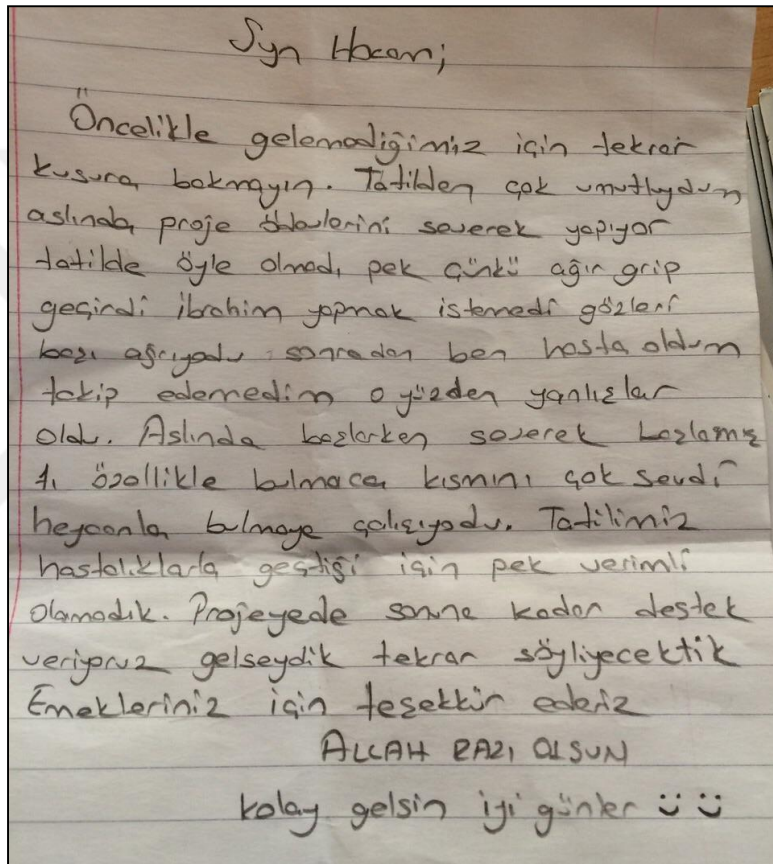 Syn Hocam;
Öncelikle gelemediğimiz için tekrar
kusura bakmayın. Tatilden çok umutluydum
aslında proje ödevlerini severek yapıyor
tatilde öyle olmadı pek çünkü ağır grip
geçirdi ibrahim yapmak istemedi gözleri
başı ağrıyodu sonradan ben hasta oldum
takip edemedim o yüzden yanlışlar
oldu. Aslında başlarken severek başlamış
tı özellikle bulmaca kısmını çok sevdi
heycanla bulmaya çalışıyodu. Tatilimiz
hastalıklarla geçtiği için pek verimli
olamadık. Projeyede sonuna kadar destek
veriyoruz gelseydik tekrar söyliyecektik
Emekleriniz için teşekkür ederiz
ALLAH RAZI OLSUN
kolay gelsin iyi günler